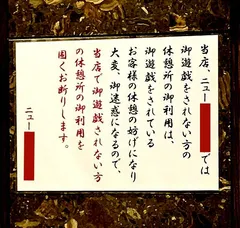 当店、ニュー では
御遊戯をされない方の
休憩所の御利用は、
御遊戯をされている
お客様の休憩の妨げになり
大変、御迷惑になるので、
当店で御遊戯されない方
の休憩所の御利用を
固くお断りします。
ニュー